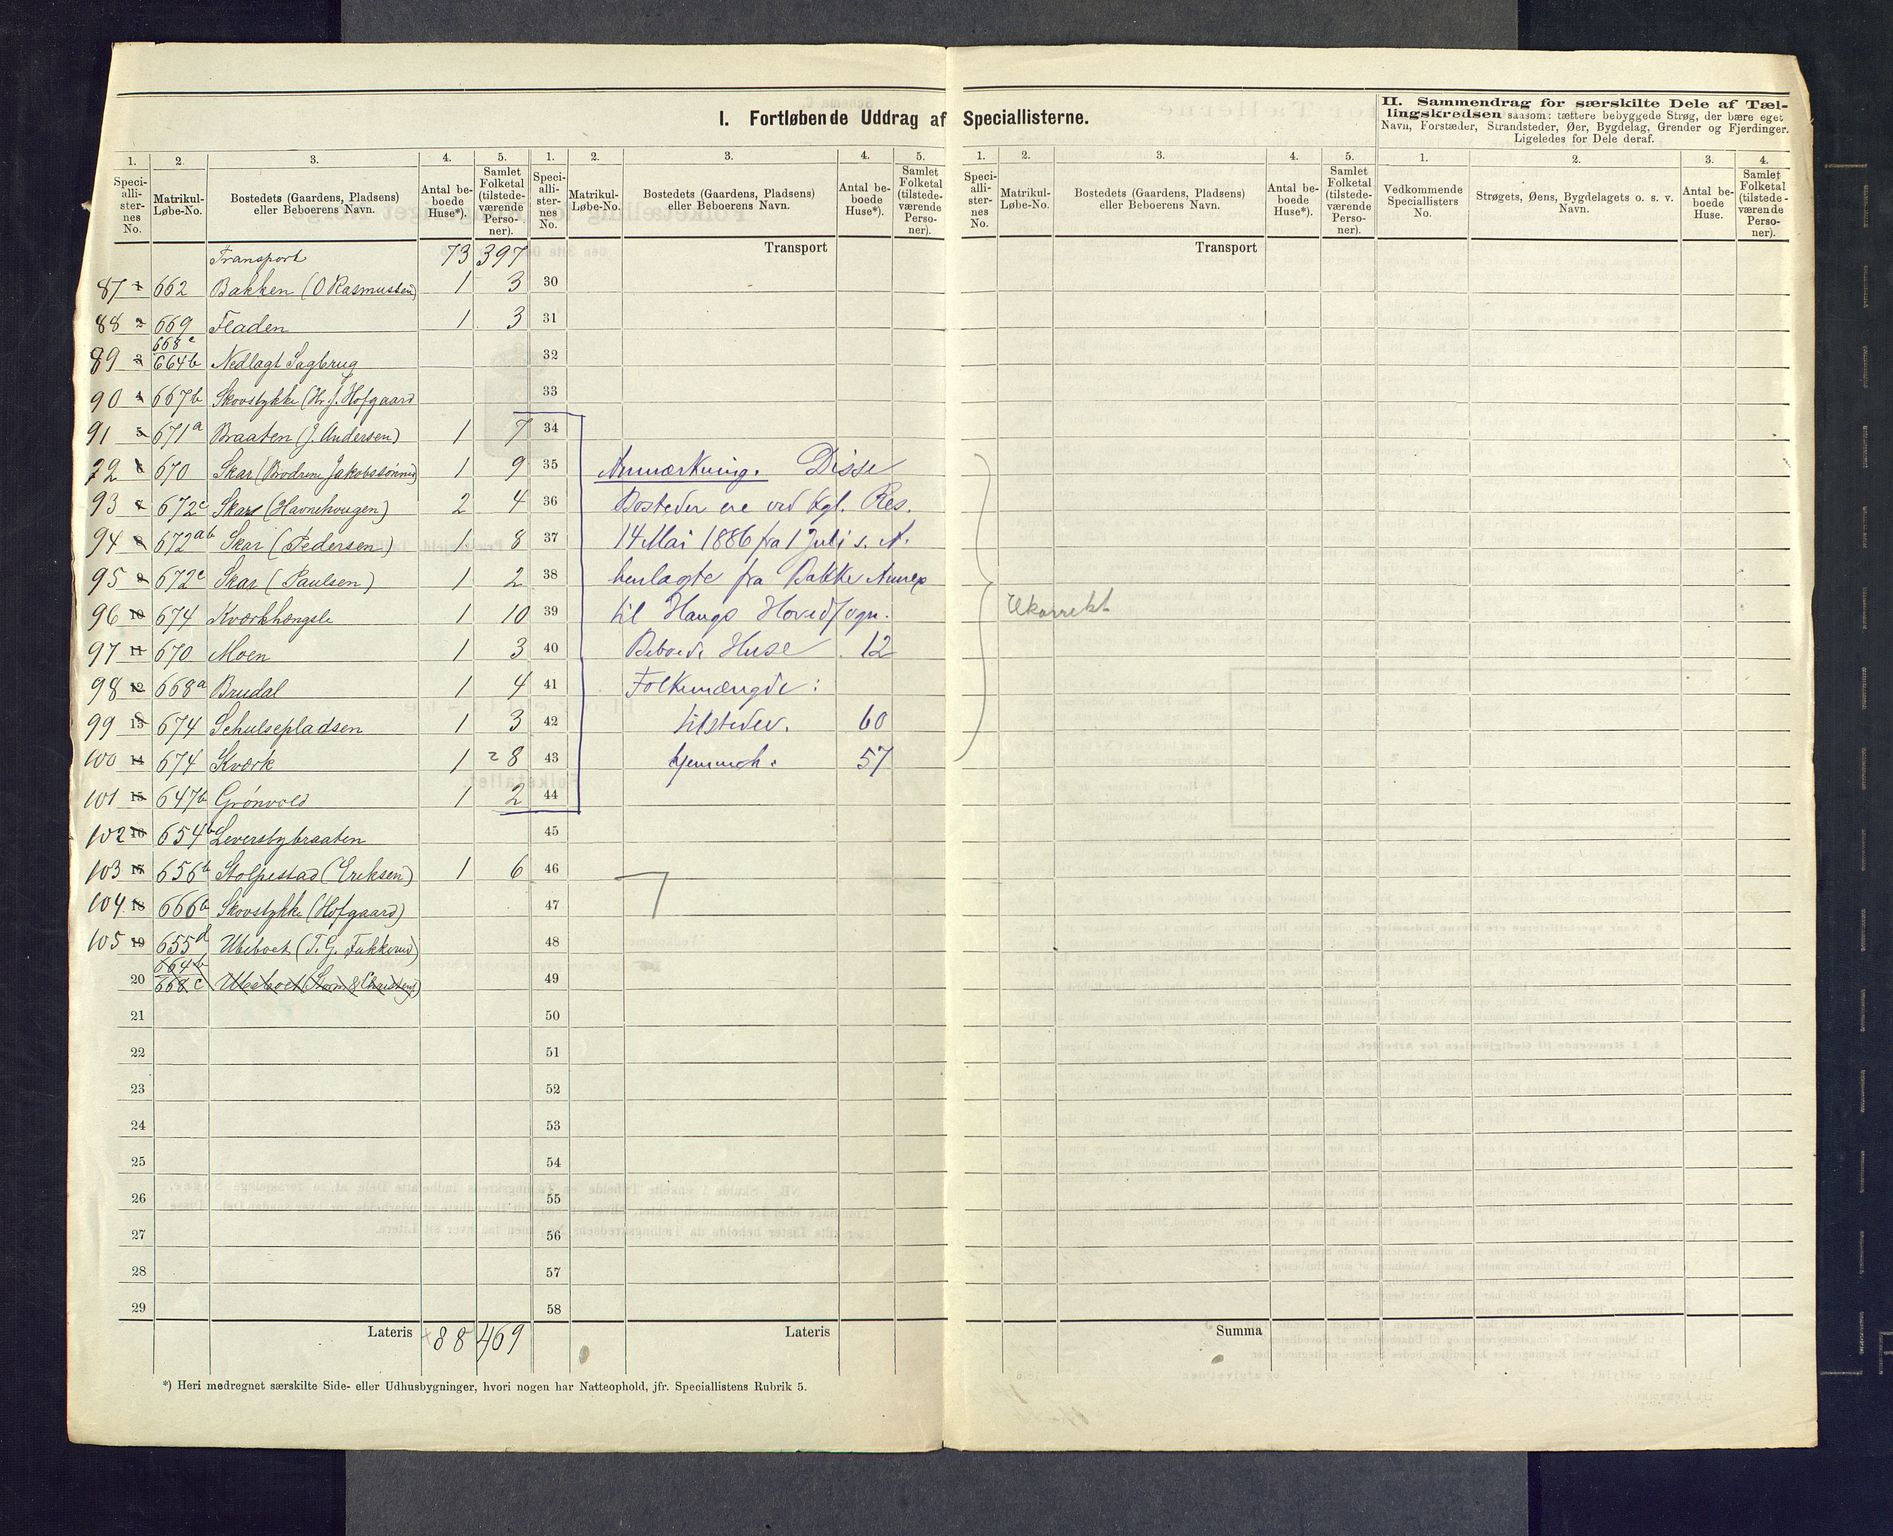 I. Fortløbende Uddrag af Speciallisterne.
II. Sammendrag for særskilte Dele af Tæl-
lingskredsen saasom: tættere bebyggede Strøg, der bære eget
Navn, Forstæder, Strandsteder, Øer, Bygdelag, Grender og Fjerdinger.
Ligeledes for Dele deraf.
1. 2. 3. 4. 5. 1. 2. 3. 4. 5. 1. 2. 3. 4. 5. 1. 2. 3. 4.
Speci-
alli-
ster-
nes
No.
Matrikul-
Løbe-No.
Bostedets (Gaardens, Pladsens)
eller Beboerens Navn.
Antal be-
boede
Huse*).
Samlet
Folketal
(tilstede-
værende
Perso-
ner).
Speci-
alli-
sternes
No.
Matrikul-
Løbe-No.
Bostedets (Gaardens, Pladsens)
eller Beboerens Navn.
Antal be-
boede
Huse*).
Samlet
Folketal
(tilstede-
værende
Perso-
ner).
Speci-
alli-
ster-
nes
No.
Matrikul-
Løbe-No.
Bostedets (Gaardens, Pladsens)
eller Beboerens Navn.
Antal be-
boede
Huse*).
Samlet
Folketal
(tilstede-
værende
Perso-
ner).
Vedkommende
Speciallisters
No.
Strøgets, Øens, Bygdelagets o. s. v.
Navn.
Antal be-
boede
Huse.
Samlet
Folketal
(tilstede-
værende
Perso-
ner).
Transport 73 397 Transport Transport
87 1 662 Bakken (O Rasmussen) 1 3 30
88 2 669 Fladen 1 3 31
668c
89 3 664b Nedlagt Sagbrug 32
90 4 667b Skovstykke (Hr. J. Hofgaard 33
91 5 671a Braaten (J. Andersen) 1 7 34
92 6 670 Skar (Brødrene Jakobssønner) 1 9 35 Anmærkning. Disse
93 7 672c Skar (Havnehougen) 2 4 36 Bosteder ere ved kgl. Res.
94 8 672ab Skar (Pedersen) 1 8 37 14 Mai 1886 fra 1 Juli s. A.
95 9 672c Skar (Paulsen) 1 2 38 henlagte fra Bakke Annex
96 10 674 Kværkhængsle 1 10 39 til Haugs Hovedsogn. Ukorrekt
97 11 670 Moen 1 3 40 Beboede Huse 12
98 12 668a Brudal 1 4 41 Folkemængde:
99 13 674 Schulsepladsen 1 3 42 tilstedev. 60
100 14 674 Kværk 1 8 43 hjemmeh. 57
101 15 647b Grønvold 1 2 44
102 16 654b Leversbybraaten 45
103 17 656b Stolpestad (Eriksen) 1 6 46
104 18 666b Skovstykke (Hofgaard) 47
105 19 655d Ubeboet (T. G. Fukkerud) 48
664b
20 668c Ubeboet (Storm & Christens) 49
21 50
22 51
23 52
24 53
25 54
26 55
27 56
28 57
29 58
Lateris 88 469 Lateris Summa
*) Heri medregnet særskilte Side- eller Udhusbygninger, hvori nogen har Natteophold, jfr. Speciallistens Rubrik 5.